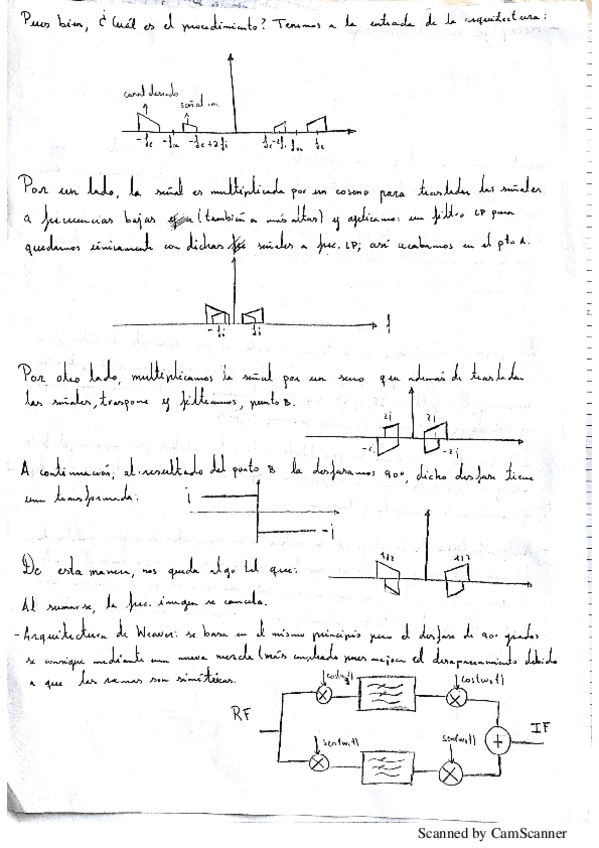 Pues bien, ¿Cuál es el procedimiento? Tenemos a la entrada de la arquitectura:
canal deseado
señal im
-fc -fol -fc+2fi fc-2fi fol fc
Por un lado, la señal es multiplicada por un coseno para trasladar las señales
a frecuencias bajas (también a más altas) y aplicamos un filtro LP para
quedarnos únicamente con dichas señales a frec. LP; así acabamos en el pto A.
-fi fi f
Por otro lado, multiplicamos la señal por un seno que además de trasladar
las señales, traspone y filtramos, punto B.
2j 2j
-2j
A continuación, al resultado del punto B la desfasamos 90º, dicho desfase tiene
una transformada:
j
-j
De esta manera, nos queda algo tal que:
1/2 1/2
Al sumarse, la frec. imagen se cancela.
- Arquitectura de Weaver: se basa en el mismo principio pero el desfase de 90 grados
se consigue mediante una nueva mezcla (más empleado pues mejora el desapareamiento debido
a que las ramas son simétricas.
RF
cos(wt)
cos(wot)
IF
sen(wt)
sen(wot)
Scanned by CamScanner